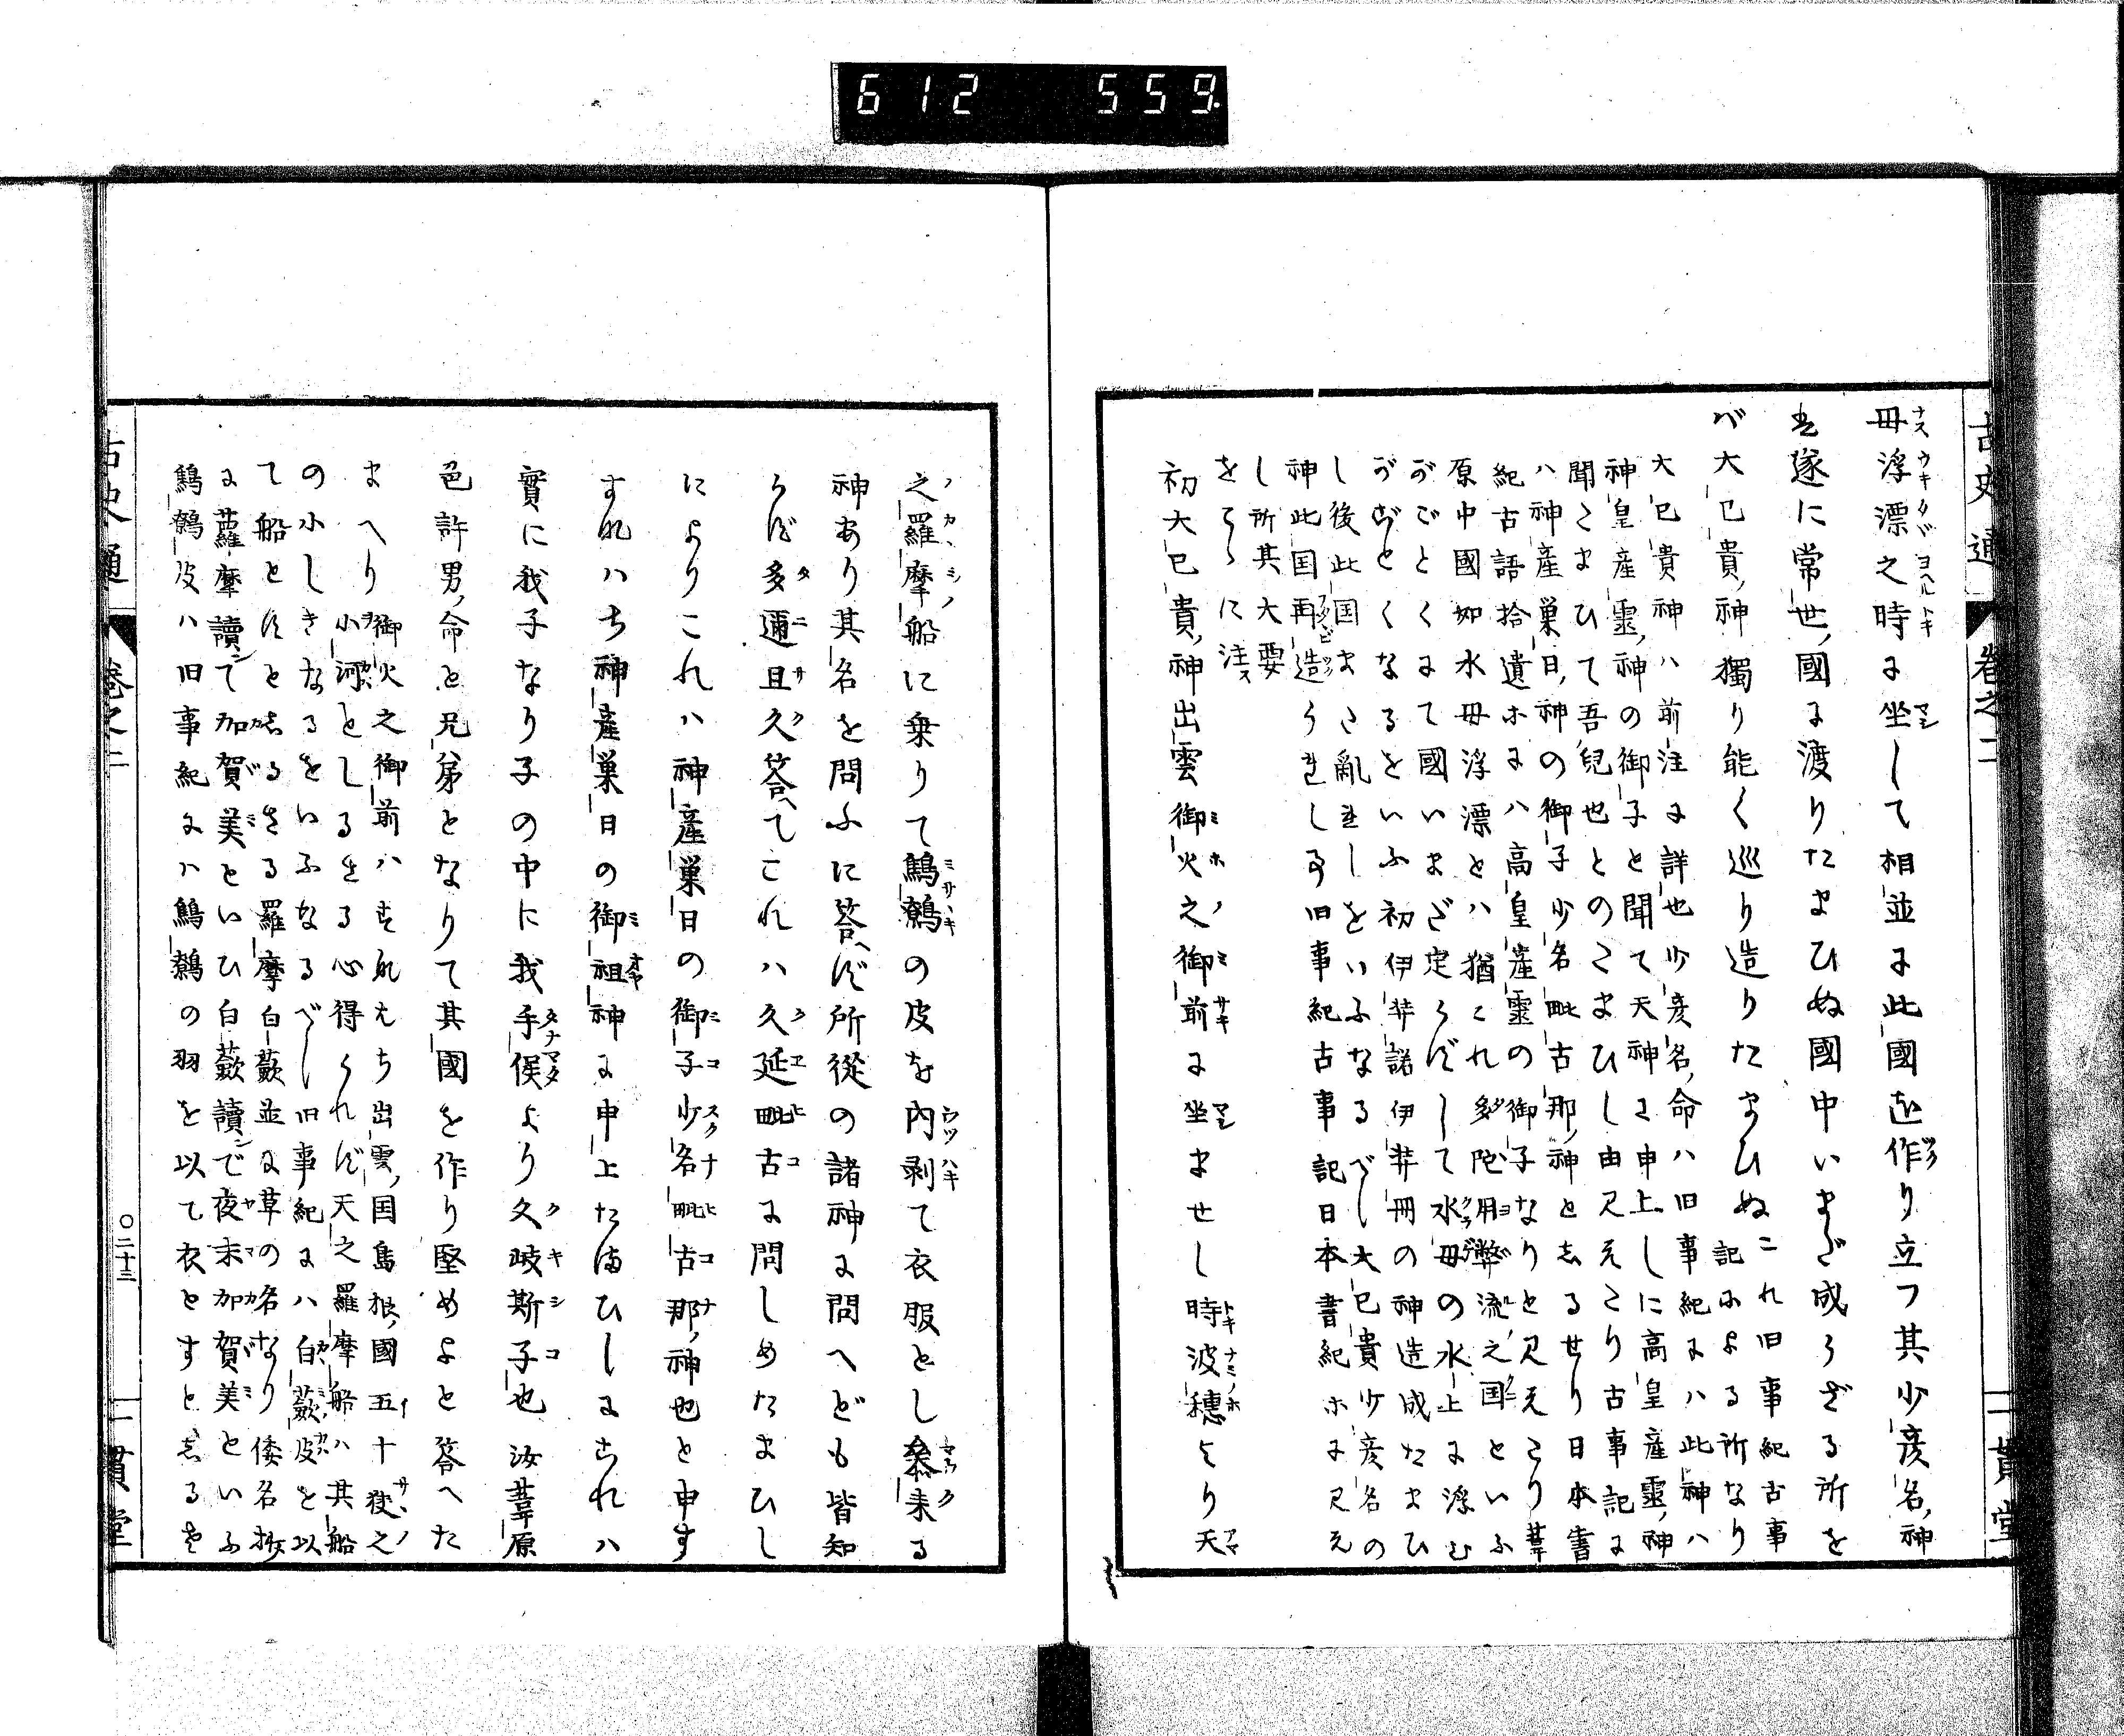 612 559
古史通 卷之二 一貫堂
母浮漂之時に坐して相並に此國を作り立フ其少彦名神
も遂に常世國に渡りたまひぬ國中いまだ成らざる所を
バ大己貴神獨り能く巡り造りたまひぬ
これ旧事紀古事
記による所なり
大己貴神ハ前注に詳也少彦名命ハ旧事紀にハ此神ハ
神皇産靈神の御子と聞て天神に申上しに高皇産靈神
聞こまひて吾兒也とのこまひし由見えこり古事記に
ハ神産巣日神の御子少名毗古那神としるせり日本書
紀古語拾遺ホにハ高皇産靈の御子なりと見えこり葦
原中國如水母浮漂とハ猶これ多陀用弊流之国といふ
がごとくにて國いまだ定らずして水母の水上に浮む
がごとくなるをいふ初伊弉諾伊弉冊の神造成たまひ
し後此国また亂れしをいふなるべし大己貴少彦名の
神此国再造られし事旧事紀古事記日本書紀ホに見え
し所其大要
をこゝに注ス
初大己貴神出雲御火之御前に坐ませし時波穂より天
之羅摩船に乗りて鷦鷯の皮を内剥て衣服とし叅来る
神あり其名を問ふに答へず所從の諸神に問へども皆知
らず多邇且久答へてこれハ久延毗古に問しめたまひし
によりこれハ神産巣日の御子少名毗古那神也と申す
すなハち神産巣日の御祖神に申上たまひしにこれハ
實に我子なり子の中に我手俣より久岐斯子也汝葦原
色許男命と兄弟となりて其國を作り堅めよと答へた
まへり
御火之御前ハすなはち出雲国島根國五十狭之
小河としるせる心得られず天之羅摩船ハ其船
の小しきなるをいふなるべし旧事紀にハ白蘞皮を以
て船とすとしるせる羅摩白蘞並に草の名なり倭名抄
に蘿摩讀て加賀美といひ白蘞讀で夜末加賀美といふ
鷦鷯皮ハ旧事紀にハ鷦鷯の羽を以て衣とすとしるせ
古史通 卷之二 〇二十三 一貫堂